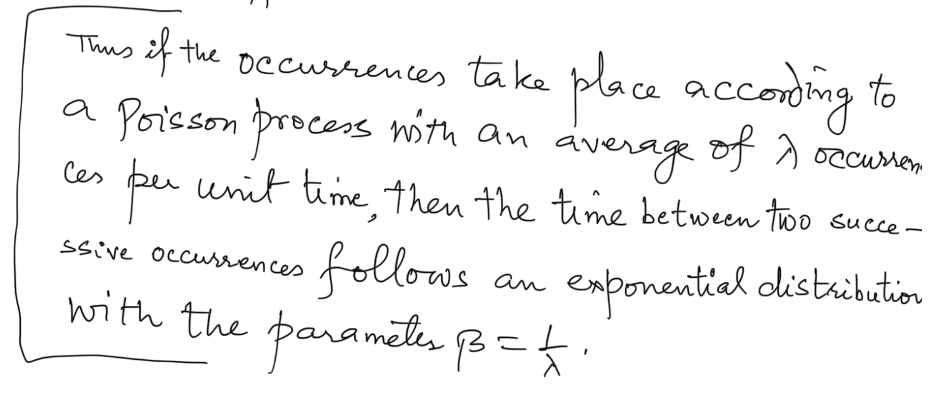 Thus if the occurrences take place according to
a Poisson process with an average of λ occurren
ces per unit time, then the time between two succe-
ssive occurrences follows an exponential distribution
with the parameter β = 1/λ.